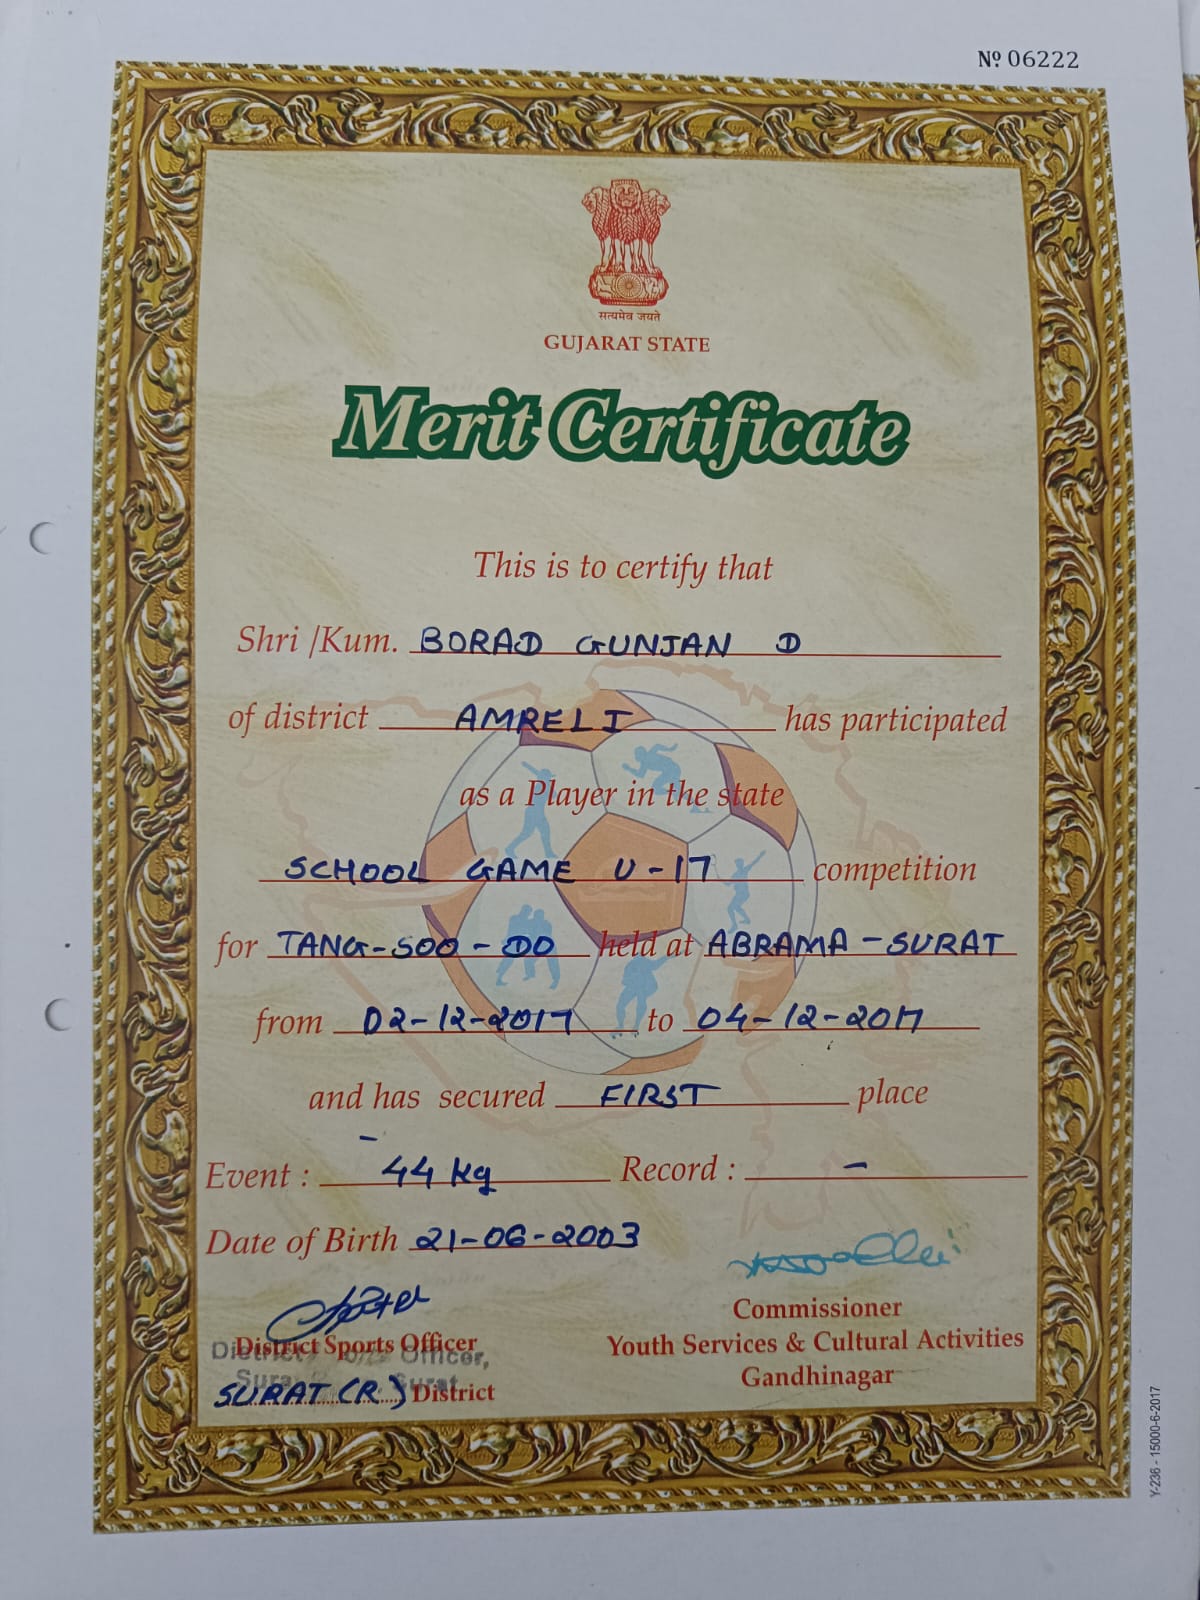 Nº 06222
सत्यमेव जयते
GUJARAT STATE
Merit Certificate
This is to certify that
Shri /Kum. BORAD GUNJAN D
of district AMRELI has participated
as a Player in the state
SCHOOL GAME U-17 competition
for TANG-SOO-DO held at ABRAMA-SURAT
from 02-12-2017 to 04-12-2017
and has secured FIRST place
Event : 44 kg Record : -
Date of Birth 21-06-2003
District Sports Officer
District Officer,
SURAT (R) District
Surat
Commissioner
Youth Services & Cultural Activities
Gandhinagar
Y-236 - 15000-6-2017